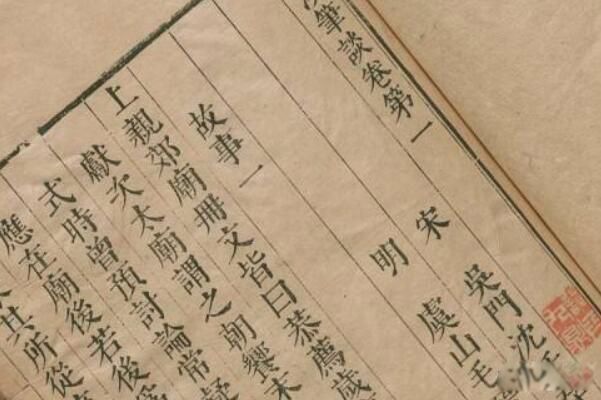 筆談卷第一
宋 吳門沈
明 虞山毛
故事一
上親郊廟冊文皆曰恭薦歲
獻次太廟謂之朝饗末
式時曾預討論常疑
應在廟後若後
其所從